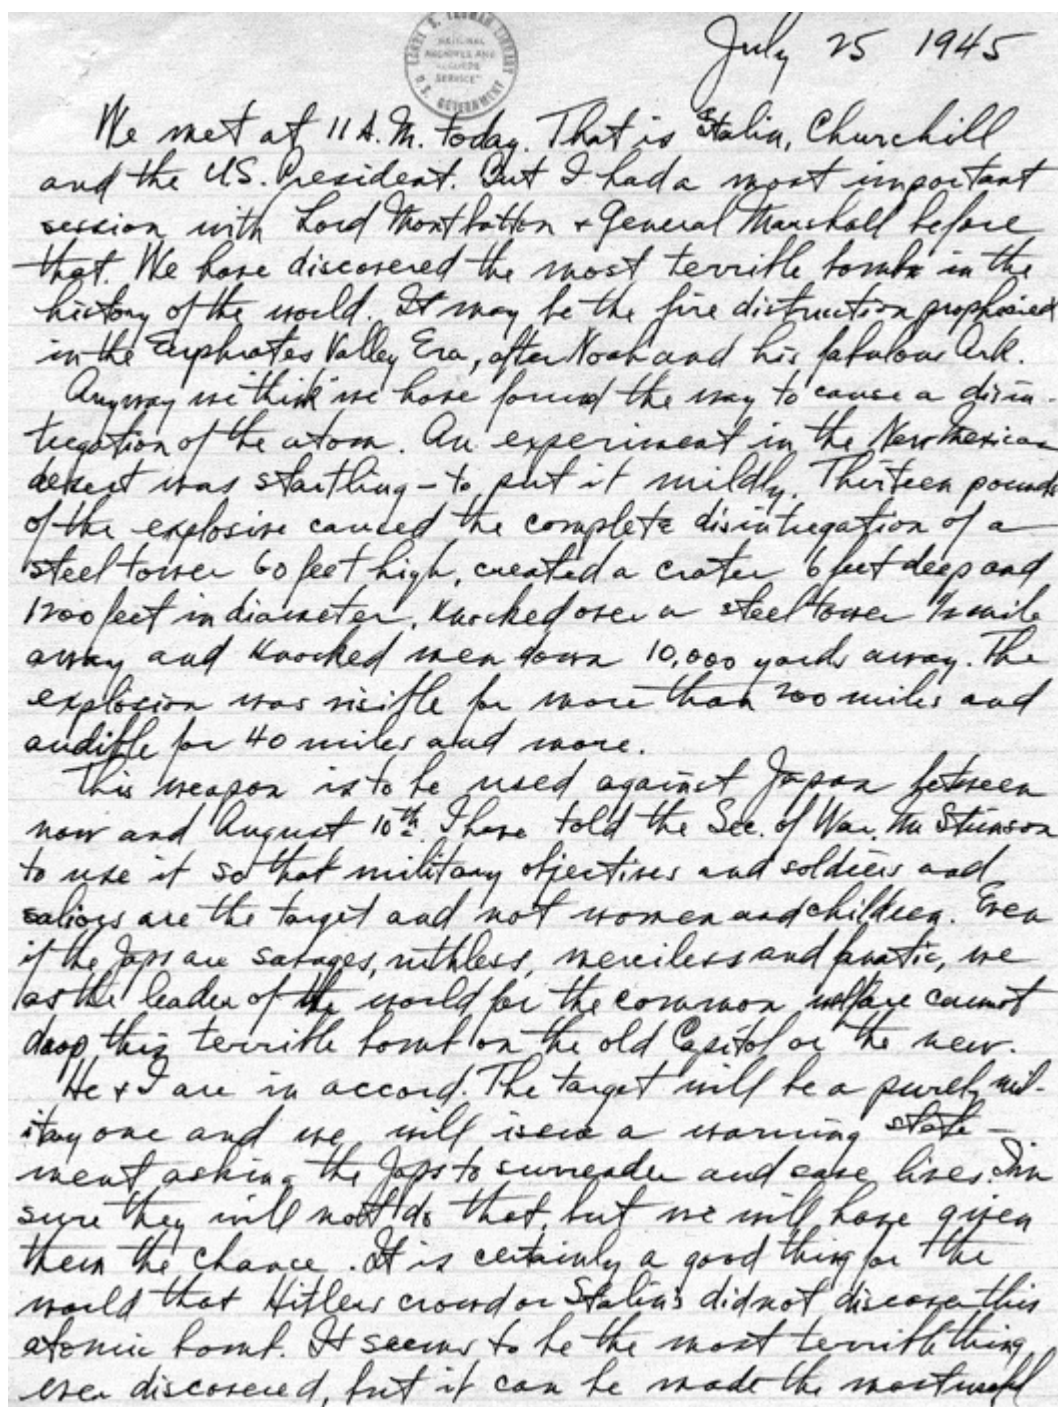 HARRY S. TRUMAN LIBRARY
NATIONAL
ARCHIVES AND
RECORDS
SERVICE
U.S. GOVERNMENT
July 25 1945
We met at 11 A.M. today. That is Stalin, Churchill
and the U.S. President. But I had a most important
session with Lord Montbatton & General Marshall before
that. We have discovered the most terrible bomb in the
history of the world. It may be the fire distruction prophesied
in the Euphrates Valley Era, after Noah and his fabulous Ark.
Anyway we 'think' we have found the way to cause a disin-
tegration of the atom. An experiment in the New Mexican
desert was startling - to put it mildly. Thirteen pounds
of the explosive caused the complete disintegration of a
steel tower 60 feet high, created a crater 6 feet deep and
1200 feet in diameter, knocked over a steel tower 1/2 mile
away and knocked men down 10,000 yards away. The
explosion was visible for more than 200 miles and
audible for 40 miles and more.
This weapon is to be used against Japan between
now and August 10th. I have told the Sec. of War, Mr. Stimson
to use it so that military objectives and soldiers and
sailors are the target and not women and children. Even
if the Japs are savages, ruthless, merciless and fanatic, we
as the leader of the world for the common welfare cannot
drop this terrible bomb on the old Capitol or the new.
He & I are in accord. The target will be a purely mil-
itary one and we will issue a warning state-
ment asking the Japs to surrender and save lives. I'm
sure they will not do that, but we will have given
them the chance. It is certainly a good thing for the
world that Hitler's crowd or Stalin's did not discover this
atomic bomb. It seems to be the most terrible thing
ever discovered, but it can be made the most useful